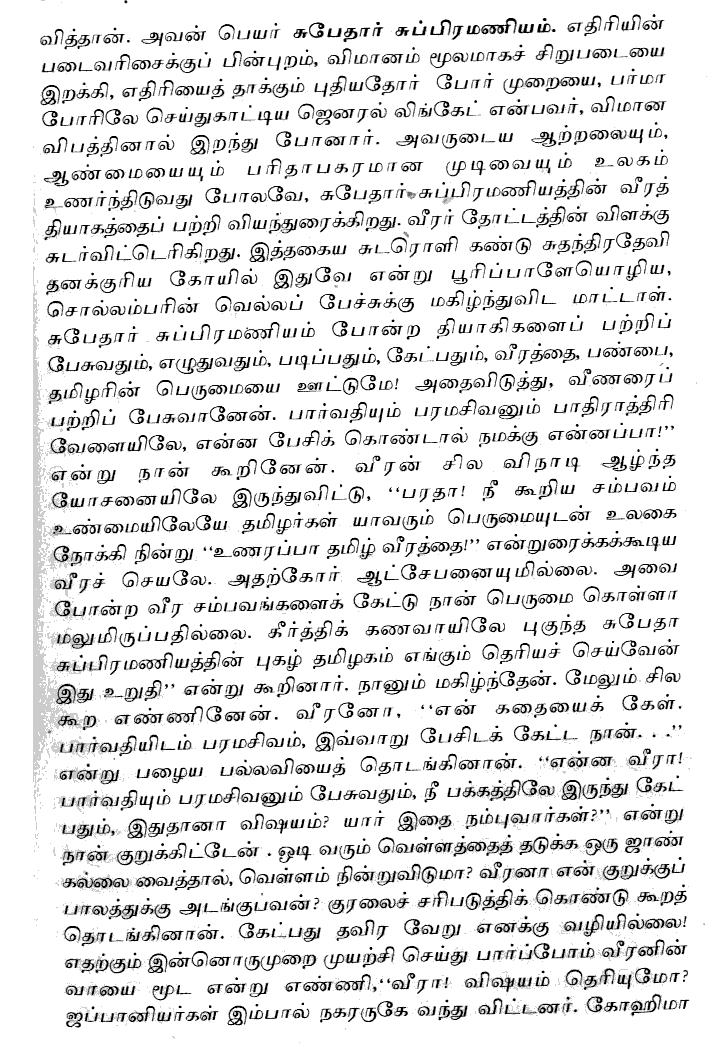 வித்தான். அவன் பெயர் சுபேதார் சுப்பிரமணியம். எதிரியின்
படைவரிசைக்குப் பின்புறம், விமானம் மூலமாகச் சிறுபடையை
இறக்கி, எதிரியைத் தாக்கும் புதியதோர் போர் முறையை, பர்மா
போரிலே செய்துகாட்டிய ஜெனரல் லிங்கேட் என்பவர், விமான
விபத்தினால் இறந்து போனார். அவருடைய ஆற்றலையும்,
ஆண்மையையும் பரிதாபகரமான முடிவையும் உலகம்
உணர்ந்திடுவது போலவே, சுபேதார் சுப்பிரமணியத்தின் வீரத்
தியாகத்தைப் பற்றி வியந்துரைக்கிறது. வீரர் தோட்டத்தின் விளக்கு
சுடர்விட்டெரிகிறது. இத்தகைய சுடரொளி கண்டு சுதந்திரதேவி
தனக்குரிய கோயில் இதுவே என்று பூரிப்பாளேயொழிய,
சொல்லம்பரின் வெல்லப் பேச்சுக்கு மகிழ்ந்துவிட மாட்டாள்.
சுபேதார் சுப்பிரமணியம் போன்ற தியாகிகளைப் பற்றிப்
பேசுவதும், எழுதுவதும், படிப்பதும், கேட்பதும், வீரத்தை, பண்பை,
தமிழரின் பெருமையை ஊட்டுமே! அதைவிடுத்து, வீணரைப்
பற்றிப் பேசுவானேன். பார்வதியும் பரமசிவனும் பாதிராத்திரி
வேளையிலே, என்ன பேசிக் கொண்டால் நமக்கு என்னப்பா!''
என்று நான் கூறினேன். வீரன் சில விநாடி ஆழ்ந்த
யோசனையிலே இருந்துவிட்டு, ''பரதா! நீ கூறிய சம்பவம்
உண்மையிலேயே தமிழர்கள் யாவரும் பெருமையுடன் உலகை
நோக்கி நின்று ''உணரப்பா தமிழ் வீரத்தை!'' என்றுரைக்கக்கூடிய
வீரச் செயலே. அதற்கோர் ஆட்சேபனையுமில்லை. அவை
போன்ற வீர சம்பவங்களைக் கேட்டு நான் பெருமை கொள்ளா
மலுமிருப்பதில்லை. கீர்த்திக் கணவாயிலே புகுந்த சுபேதா
சுப்பிரமணியத்தின் புகழ் தமிழகம் எங்கும் தெரியச் செய்வேன்
இது உறுதி'' என்று கூறினார். நானும் மகிழ்ந்தேன். மேலும் சில
கூற எண்ணினேன். வீரனோ, ''என் கதையைக் கேள்.
பார்வதியிடம் பரமசிவம், இவ்வாறு பேசிடக் கேட்ட நான். . .''
என்று பழைய பல்லவியைத் தொடங்கினான். ''என்ன வீரா!
பார்வதியும் பரமசிவனும் பேசுவதும், நீ பக்கத்திலே இருந்து கேட்
பதும், இதுதானா விஷயம்? யார் இதை நம்புவார்கள்?'' என்று
நான் குறுக்கிட்டேன் . ஒடி வரும் வெள்ளத்தைத் தடுக்க ஒரு ஜாண்
கல்லை வைத்தால், வெள்ளம் நின்றுவிடுமா? வீரனா என் குறுக்குப்
பாலத்துக்கு அடங்குப்வன்? குரலைச் சரிபடுத்திக் கொண்டு கூறத்
தொடங்கினான். கேட்பது தவிர வேறு எனக்கு வழியில்லை!
எதற்கும் இன்னொருமுறை முயற்சி செய்து பார்ப்போம் வீரனின்
வாயை மூட என்று எண்ணி,''வீரா! விஷயம் தெரியுமோ?
ஜப்பானியர்கள் இம்பால் நகரருகே வந்து விட்டனர். கோஹிமா